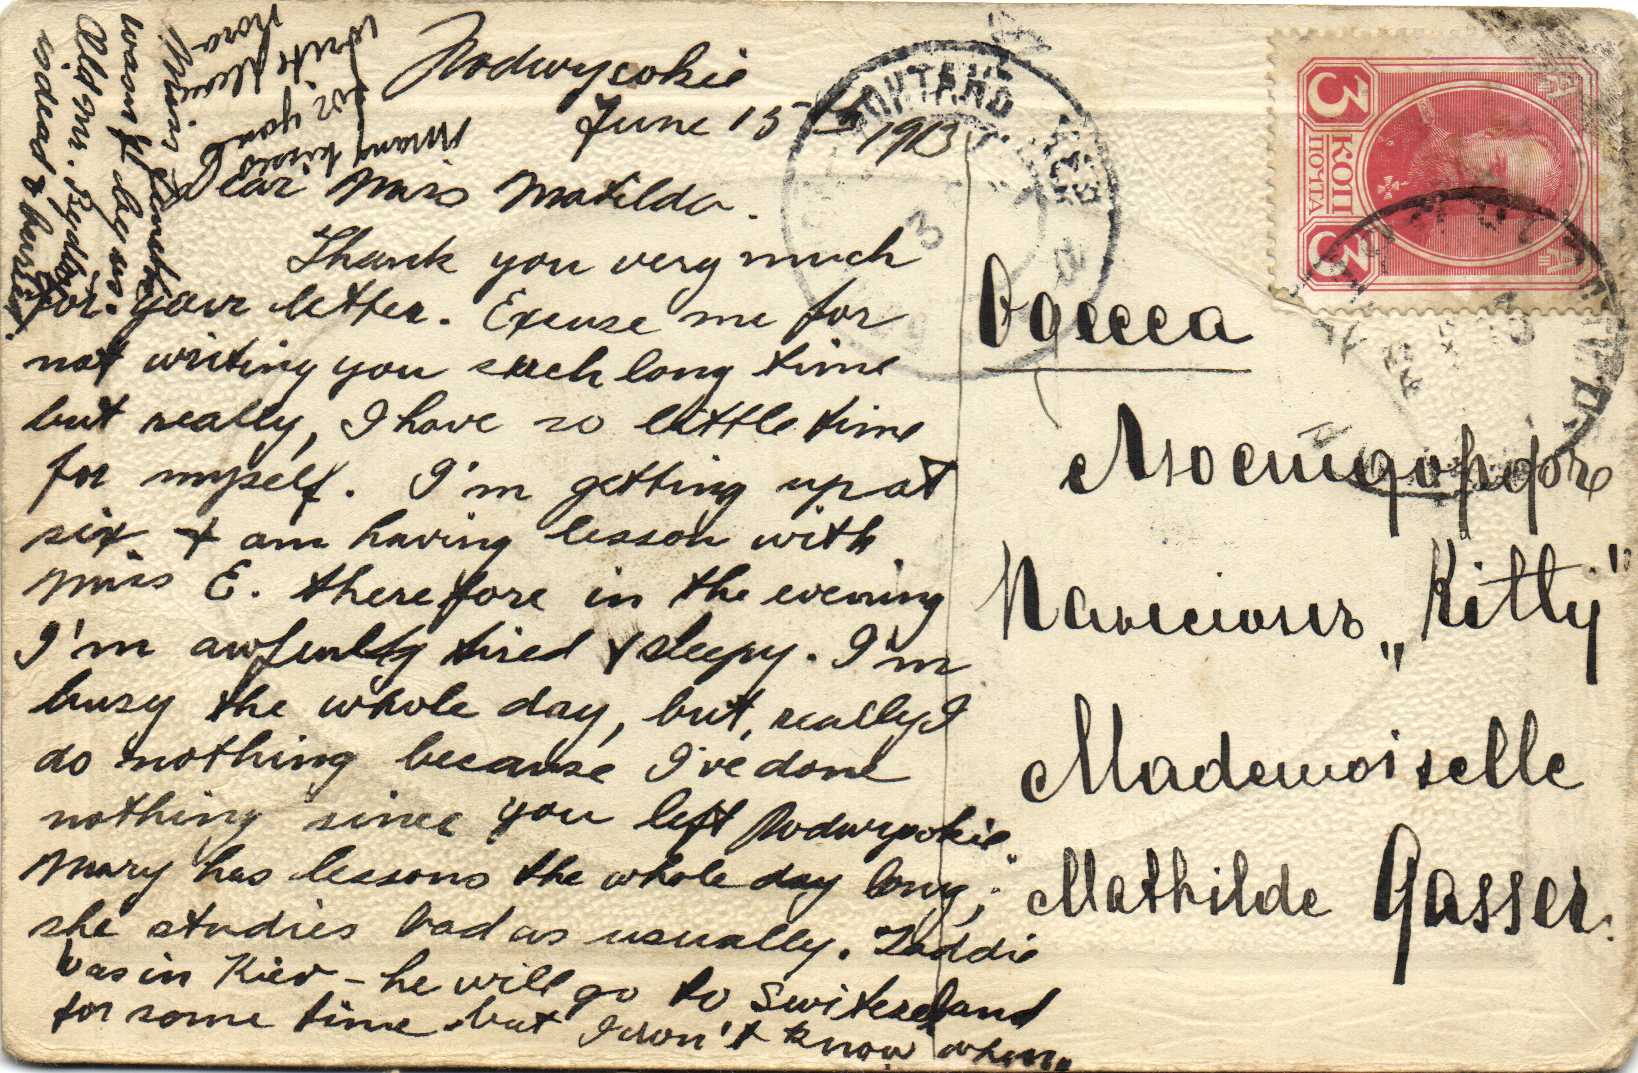 Podwysokie
June 15 1913
Dear Miss Matilda.
Thank you very much
for your letter. Excuse me for
not writing you such long time
but really, I have so little time
for myself. I'm getting up at
six. & am having lesson with
Miss E. therefore in the evening
I'm awfully tired & sleepy. I'm
busy the whole day, but, really I
do nothing because I've done
nothing since you left Podwysokie.
Mary has lessons the whole day long,
she studies bad as usually. Laddie
was in Kiev – he will go to Switzerland
for some time but I don't know when.
many kisses
for you
write please
Nora
Miss
wasn't by us.
Old Mr.
is dead &
3
КОП
ПОЧТА
3
Одесса
Люстдорфъ
Пансионъ „Kitty"
Mademoiselle
Mathilde Gasser.